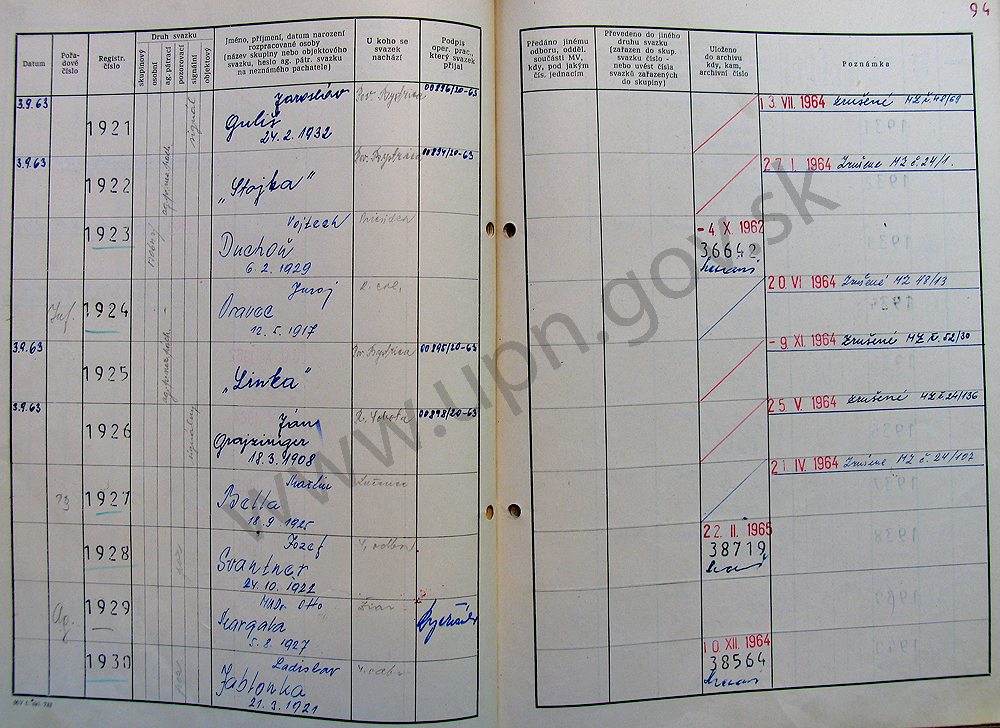 94
Datum
Pořadové číslo
Registr. číslo
Druh svazku
skupinový
osobní
ag. pátrací
pozorovací
signální
objektový
Jméno, příjmení, datum narození
rozpracované osoby
(název skupiny nebo objektového
svazku, heslo ag. pátr. svazku
na neznámého pachatele)
U koho se
svazek
nachází
Podpis
oper. prac.,
který svazek
přijal
Předáno jinému
odboru, odděl.
součásti MV,
kdy, pod jakým
čís. jednacím
Převedeno do jiného
druhu svazku
(zařazen do skup.
svazku číslo -
nebo uvést čísla
svazků zařazených
do skupiny)
Uloženo
do archivu
kdy, kam,
archivní číslo
Poznámka
3.9.63
1921
signál
Jaroslav
Guliš
24.2.1932
Bystrica
00896/20-63
13. VII. 1964 Zrušené MZ č. 48/69
3.9.63
1922
„Stojka"
Bystrica
00894/20-63
27. I. 1964 Zrušené MZ č. 24/1.
1923
osobný
Vojtech
Duchoň
6.2.1929
Prievidza
-4. X. 1962
36642
1924
Juraj
Oravec
12.5.1917
20. VI. 1964 Zrušené MZ 48/13
3.9.63
1925
„Linka"
Bystrica
00895/20-63
-9. XI. 1964 Zrušené MZ č. 52/30
3.9.63
1926
signálny
Ján
Grajzinger
18.3.1908
R. Sobota
00898/20-63
25. V. 1964 Zrušené MZ č. 24/136
1927
Martin
Bella
18.9.1925
Lučenec
21. IV. 1964 Zrušené MZ č. 24/102
1928
Jozef
Svantner
24.10.1922
odbor
22. II. 1965
38719
Ag.
1929
MUDr. Otto
Margala
5.8.1927
1930
Ladislav
Jablonka
21.3.1921
odbor
10. XII. 1964
38564
www.upn.gov.sk